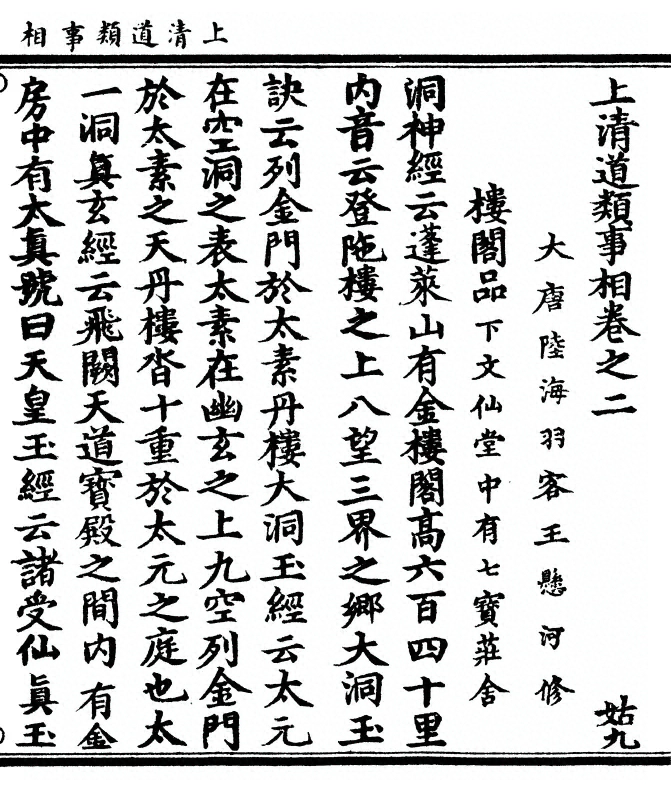 上清道類事相
上清道類事相卷之二
姑九
大唐陸海羽客王懸河修
樓閣品下文仙堂中有七寶莊舍
洞神經云蓬萊山有金樓閣高六百四十里
内音云登陁樓之上八望三界之鄉大洞玉
訣云列金門於太素丹樓大洞玉經云太元
在空洞之表太素在幽玄之上九空列金門
於太素之天丹樓沓十重於太元之庭也太
一洞真玄經云飛闕天道寶殿之間内有金
房中有太真號曰天皇玉經云諸受仙真玉